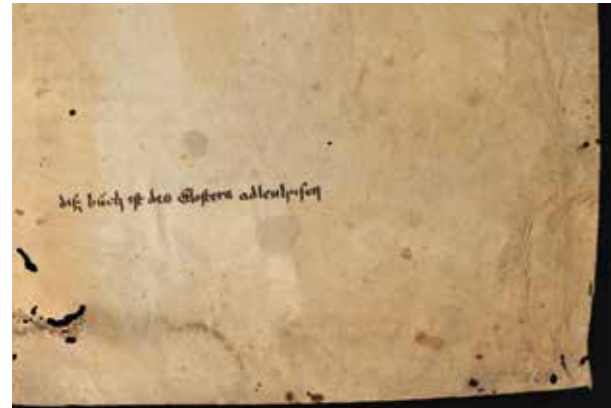 diß bůch ist des Closters adlenhusen